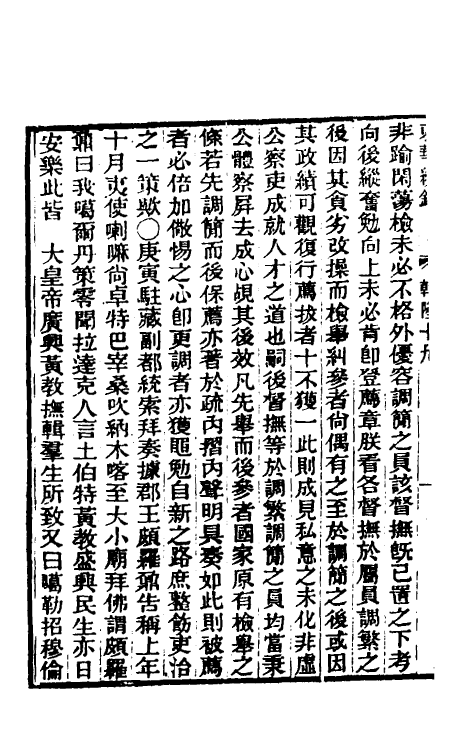 東華續錄 乾隆十九
非踰閑蕩檢未必不格外優容調簡之員該督撫旣已置之下考
向後縱奮勉向上未必肯卽登薦章朕看各督撫於屬員調繁之
後因其貪劣改操而檢舉糾參者尚偶有之至於調簡之後或因
其政績可觀復行薦拔者十不獲一此則成見私意之未化非虛
公察吏成就人才之道也嗣後督撫等於調繁調簡之員均當秉
公體察屏去成心覘其後效凡先舉而後參者國家原有檢舉之
條若先調簡而後保薦亦著於疏內摺內聲明具奏如此則被薦
者必倍加儆惕之心卽更調者亦獲黽勉自新之路庶整飭吏治
之一策歟〇庚寅駐藏副都統索拜奏據郡王頗羅鼐告稱上年
十月夷使喇嘛尚卓特巴宰桑吹納木喀至大小廟拜佛謂頗羅
鼐曰我噶爾丹策零聞拉達克人言土伯特黃教盛興民生亦日
安樂此皆 大皇帝廣興黃教撫輯羣生所致又曰噶勒招穆倫